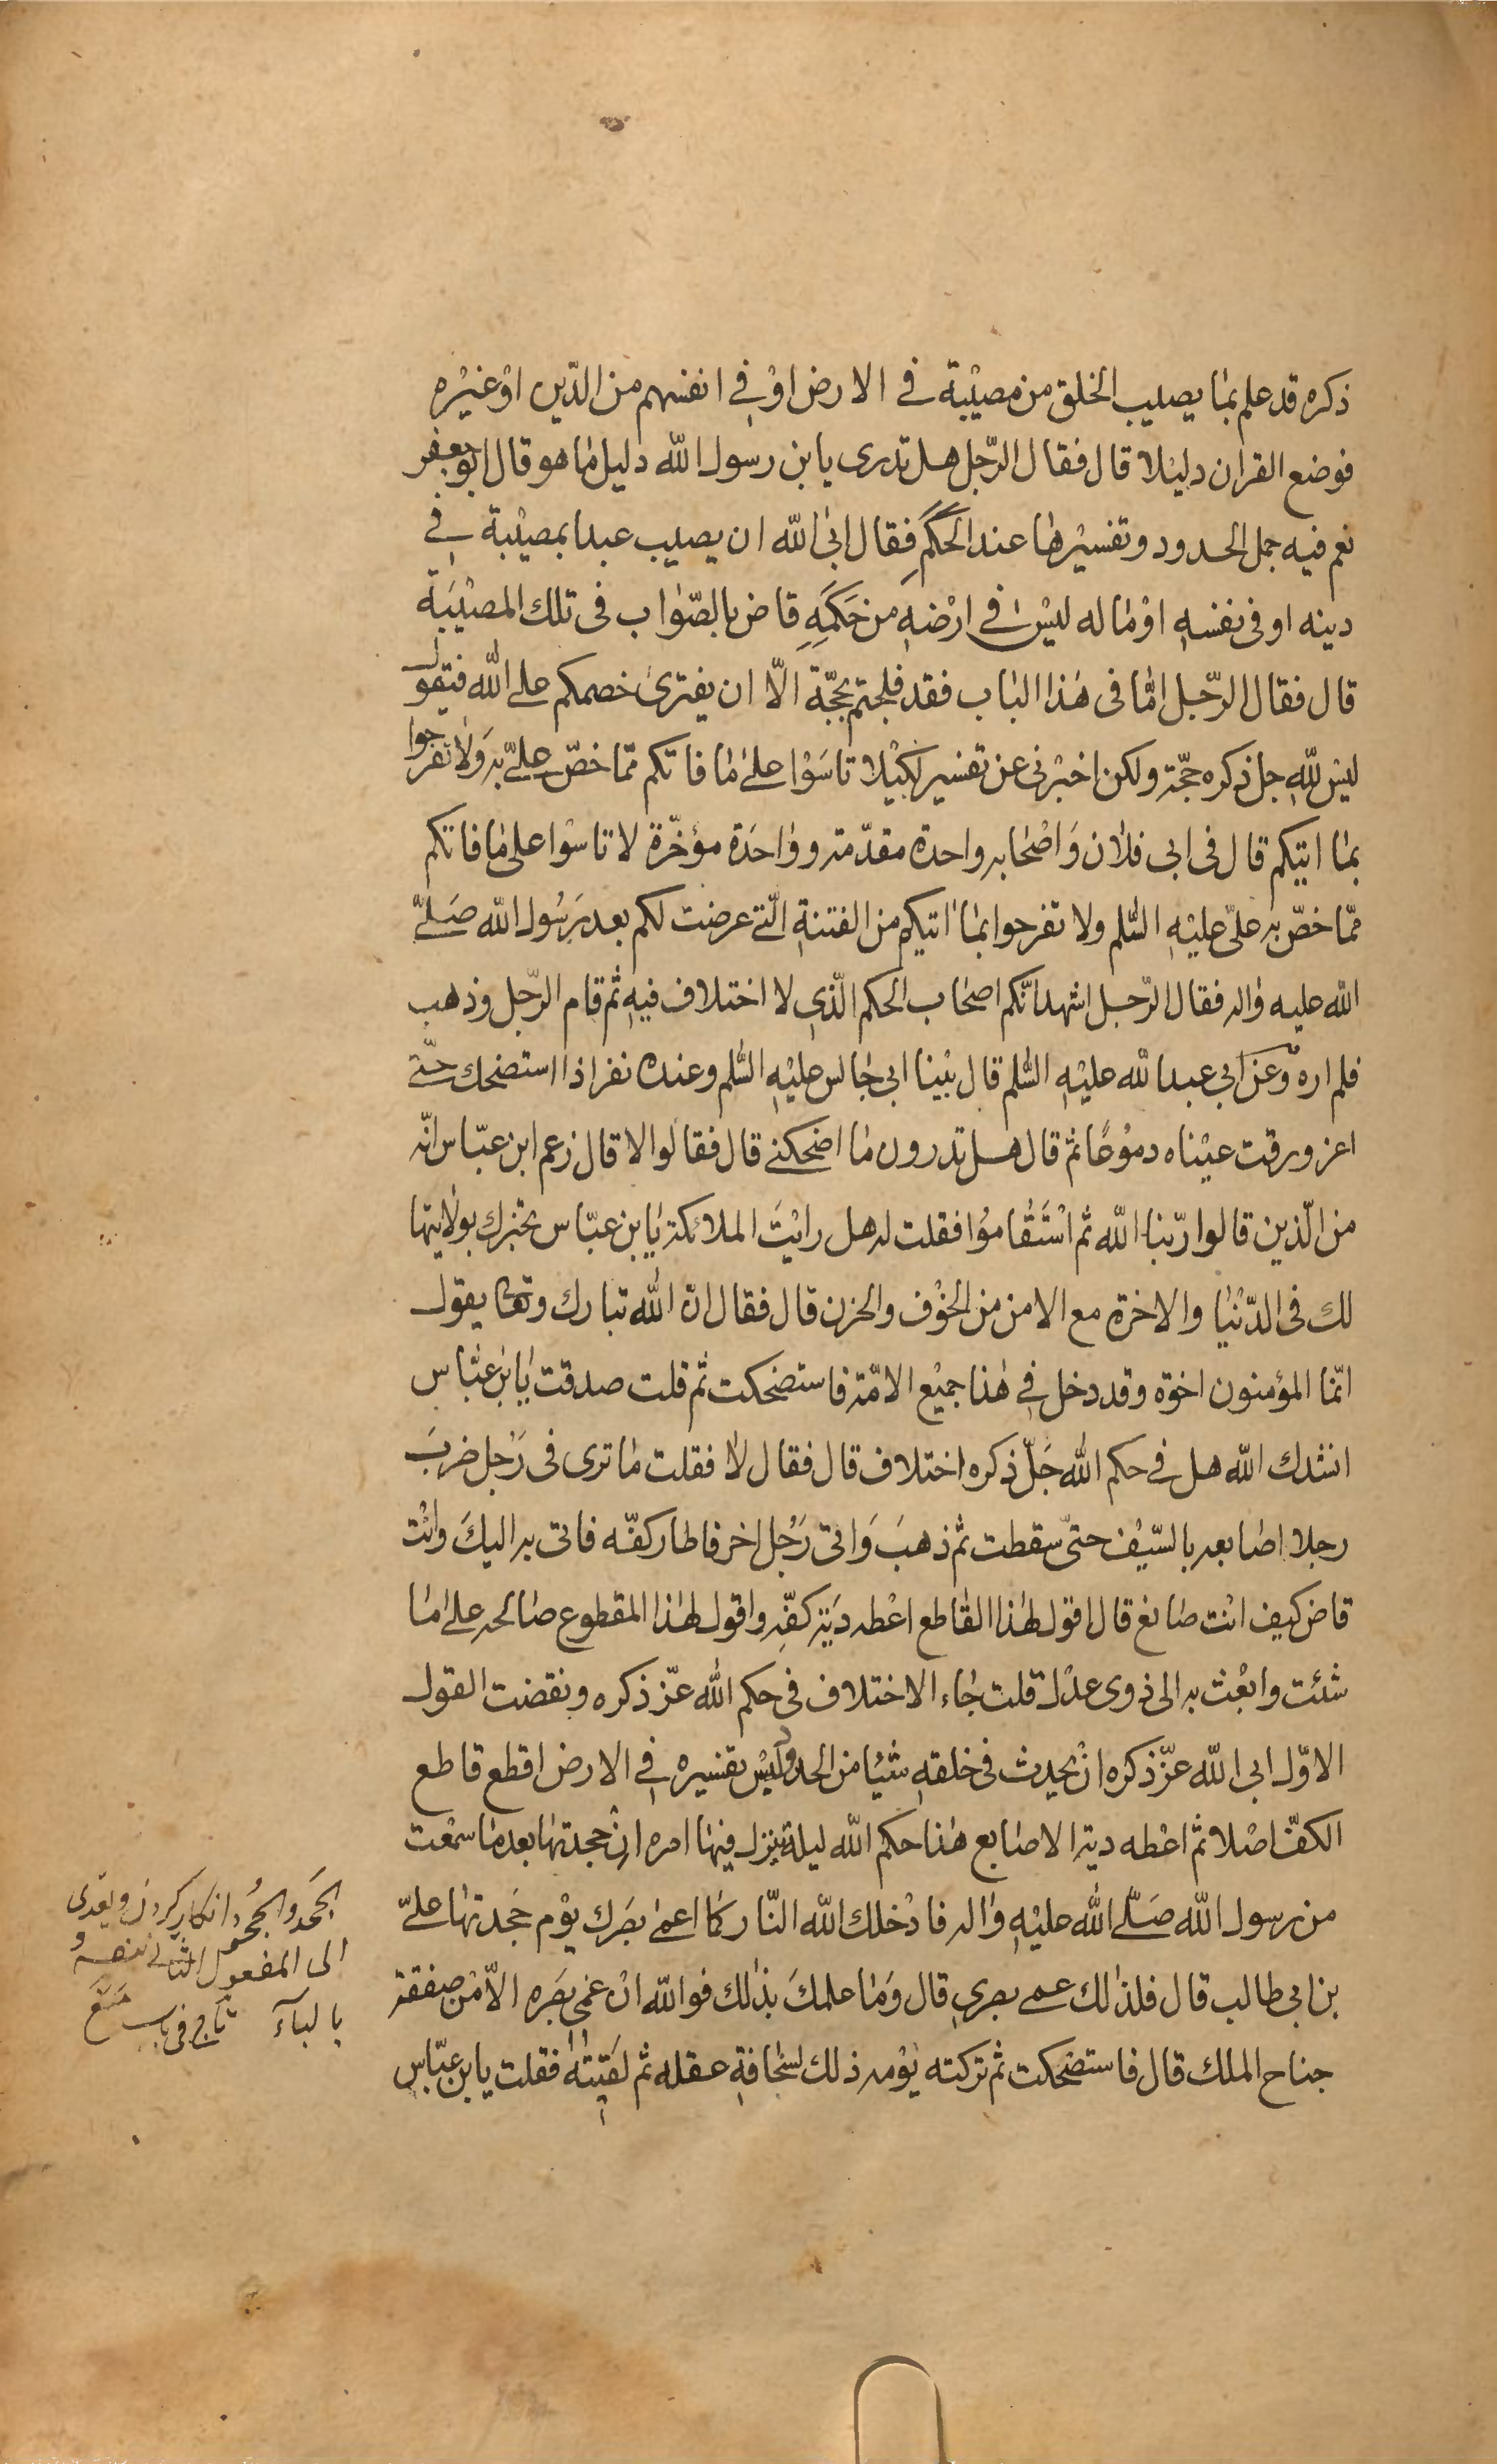 ذكره قد علم بما يصيب الخلق من مصيبة في الارض او في انفسهم من الدّين او غيره
فوضع القران دليلا قال فقال الرّجل هل تدرى يا بن رسول الله دليل ما هو قال ابو جعفر
نعم فيه جمل الحدود وتفسيرها عند الحكم فقال ابى الله ان يصيب عبدا بمصيبة في
دينه او فى نفسه او ماله ليس في ارضه من حَكَمِهِ قاض بالصّواب فى تلك المصيبة
قال فقال الرّجل امّا فى هذا الباب فقد فلجتم بحجّة الّا ان يفترى خصمكم على الله فيقول
ليس للّه جل ذكره حجّة ولكن اخبرنى عن تفسير لكيلا تاسَوْا على ما فاتكم ممّا خصّ به علىّ ولا تفرحوا
بما اتيكم قال فى ابى فلان وَاصْحابه واحدة مقدّمة وواحدة مؤخّرة لا تاسْوا على ما فاتكم
ممّا خصّ به علىّ عليْه السّلم ولا تفرحوا بما اتيكم من الفتنة الّتى عرضت لكم بعد رَسُول الله صَلّى
الله عليه واله فقال الرّجل اشهد انّكم اصحاب الحكم الّذي لا اختلاف فيه ثم قام الرّجل وذهب
فلم اره وعَن ابي عبد الله عليْه السّلم قال بيْنا ابى جالس عليْه السّلم وعنده نفر اذا استضحك حتّى
اغرورقت عيْناه دموْعًا ثمّ قال هل تدرون ما اضحكنى قال فقالوا لا قال زعم ابن عبّاس انّه
من الّذين قالوا ربّنا الله ثم اسْتَقاموُا فقلت له هل رايْتَ الملائكة يا بن عبّاس تخبرك بولايتها
لك فى الدّنيا والاخرة مع الامن من الخوْف والحزن قال فقال انّ الله تبارك وتعا يقول
انّما المؤمنون اخوة وقد دخل في هذا جميْع الامّة فاستضحكت ثم قلت صدقت يا بن عبّاس
انشدك الله هل في حكم الله جَلّ ذكره اختلاف قال فقال لا فقلت ما ترى فى رَجل ضربَ
رجلا اصابعه بالسّيْف حتّى سقطت ثم ذهبَ وَاتى رَجُل اخر فاطار كفّه فاتى به اليكَ وانْت
قاض كيف انت صانع قال اقول لهذا القاطع اعْطه ديَة كفّه واقول لهذا المقطوع صالحه على ما
شئت وابْعث به الى ذوى عدْل قلت جاء الاختلاف فى حكم الله عزّ ذكره ونقضت القول
الاوّل ابى الله عزّ ذكره انْ يحدث فى خلقه شيْئا من الحدود وليْس تفسيره في الارض اقطع قاطع
الكفّ اصْلا ثم اعْطه دية الاصابع هذا حكم الله ليلة ينزل فيها امره ان جحدتها بعد ما سمعْت
من رسول الله صَلّى الله عليْه واله فادْخلك الله النّار كما اعمى بصَرك يوْم جَحدتها علىّ
بن ابى طالب قال فلذلك عمى بصرى قال وَما علمكَ بذلك فو الله انْ عمى بصَره الّا من صفقة
جناح الملك قال فاستضحكت ثم تركته يوْمه ذلك لسخافة عقله ثم لقيته فقلت يا بن عبّاس
الجَحد والجُحود انكار كردن ويعدى
الى المفعول الثانى بنفسه و
بالباء تاج فى باب مَنَع